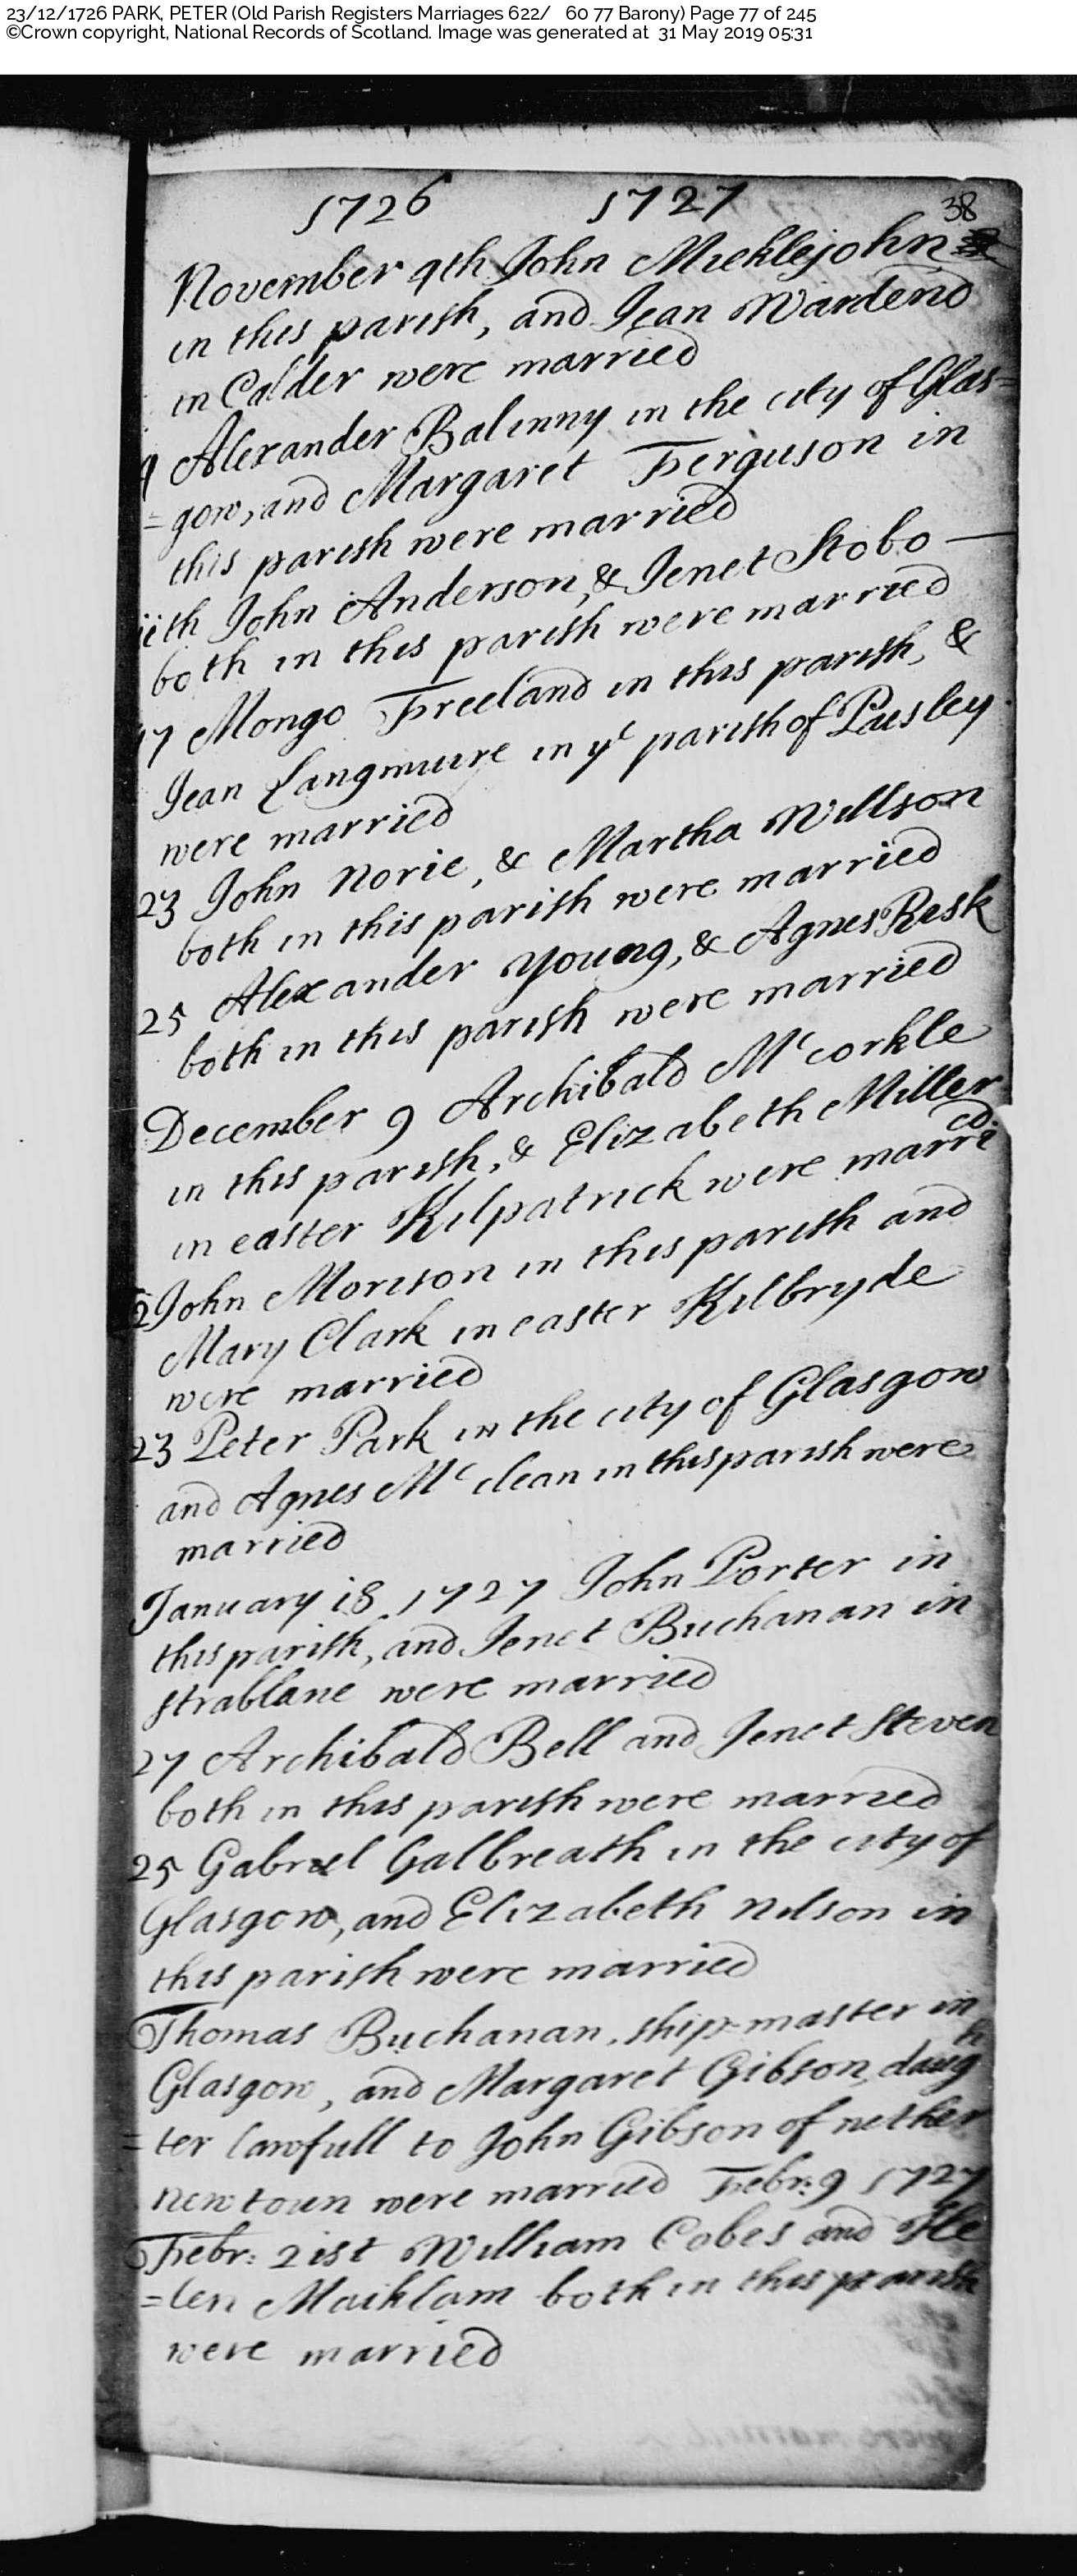 23/12/1726 PARK, PETER (Old Parish Registers Marriages 622/ 60 77 Barony) Page 77 of 245
©Crown copyright, National Records of Scotland. Image was generated at 31 May 2019 05:31
1726 1727 38
November 9th John Micklejohn
in this parish, and Jean Wardend
in Calder were married
9 Alexander Balinny in the city of Glas=
=gow, and Margaret Ferguson in
this parish were married
11th John Anderson, & Jenet Stobo —
both in this parish were married
17 Mongo Freeland in this parish, &
Jean Langmuire in yᵉ parish of Paisley
were married
23 John Norie, & Martha Willson
both in this parish were married
25 Alexander Young, & Agnes Risk
both in this parish were married
December 9 Archibald Mᶜcorkle
in this parish, & Elizabeth Miller
in easter Kilpatrick were married
John Morison in this parish and
Mary Clark in easter Kilbryde
were married
23 Peter Park in the city of Glasgow
and Agnes Mᶜclean in this parish were
married
January 18 1727 John Porter in
this parish, and Jenet Buchanan in
strablane were married
27 Archibald Bell and Jenet Steven
both in this parish were married
25 Gabriel Galbreath in the city of
Glasgow, and Elizabeth Nilson in
this parish were married
Thomas Buchanan, ship-master in
Glasgow, and Margaret Gibson, daugh
=ter lawfull to John Gibson of nether
newtoun were married Febr: 9 1727
Febr: 21st William Cobes and He
=len Maiklam both in this parish
were married